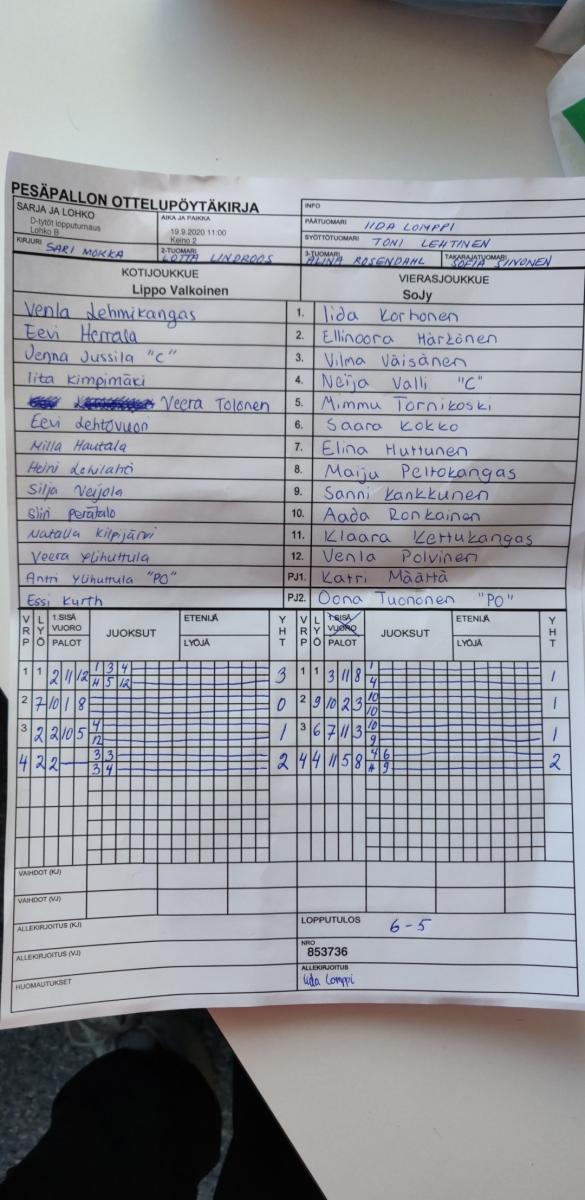 PESÄPALLON OTTELUPÖYTÄKIRJA
SARJA JA LOHKO
D-tytöt lopputurnaus
Lohko B
AIKA JA PAIKKA
19.9.2020 11:00
Keino 2
INFO
PÄÄTUOMARI IIDA LOMPPI
SYÖTTÖTUOMARI TONI LEHTINEN
KIRJURI SARI MOKKA
2-TUOMARI LOTTA LINDROOS
3-TUOMARI ALINA ROSENDAHL
TAKARAJATUOMARI SOFIA SIIVONEN
KOTIJOUKKUE
Lippo Valkoinen
VIERASJOUKKUE
SoJy
Venla Lehmikangas 1. Iida Korhonen
Eevi Herrala 2. Ellinoora Härkönen
Jenna Jussila "C" 3. Vilma Väisänen
Iita Kimpimäki 4. Neija Valli "C"
Veera Tolonen 5. Mimmu Tornikoski
Eevi Lehtovuori 6. Saara Kokko
Milla Hautala 7. Elina Huttunen
Heini Lehilahti 8. Maiju Peltokangas
Silja Veijola 9. Sanni Kankkunen
Siiri Perätalo 10. Aada Ronkainen
Natalla Kilpijärvi 11. Klaara Kettukangas
Veera Ylihuttula 12. Venla Polvinen
Antti Ylihuttula "PO" PJ1. Katri Määttä
Essi Kurth PJ2. Oona Tuononen "PO"
VRP LYÖ 1.SISÄ VUORO PALOT JUOKSUT ETENIJÄ LYÖJÄ YHT VRP LYÖ 1.SISÄ VUORO PALOT JUOKSUT ETENIJÄ LYÖJÄ YHT
1 1 2 11 12 1 3 4 3 1 1 3 11 8 1 1
5 12 4
2 7 10 1 8 0 2 9 10 2 3 10 1
10
3 2 2 10 5 4 1 3 6 7 11 3 10 1
12 9
4 2 2 3 3 2 4 4 11 5 8 4 6 2
3 4 9
VAIHDOT (KJ)
VAIHDOT (VJ)
ALLEKIRJOITUS (KJ)
LOPPUTULOS 6-5
ALLEKIRJOITUS (VJ)
NRO
853736
HUOMAUTUKSET
ALLEKIRJOITUS
Iida Lomppi